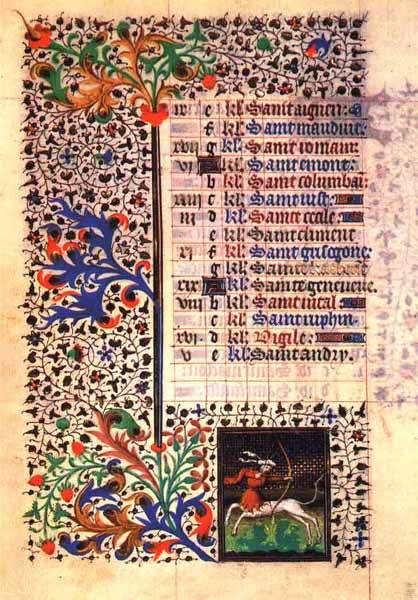 e kl' Saint aignen:
f kl' Saint mauduit:
xvii g kl' Saint romain:
vi A kl' Saint emont:
b kl' Sainte columban
xiiii c kl' Saint iust:
iii d kl' Sainte cecile
e kl' Saint climent
xi f kl' Saint grisogone:
g kl' Sainte
xix A kl' Sainte geneuieue.
viii b kl' Saint vital
c kl' Saint ruphin
xvi d kl' Vigile
v e kl' Saint andry.